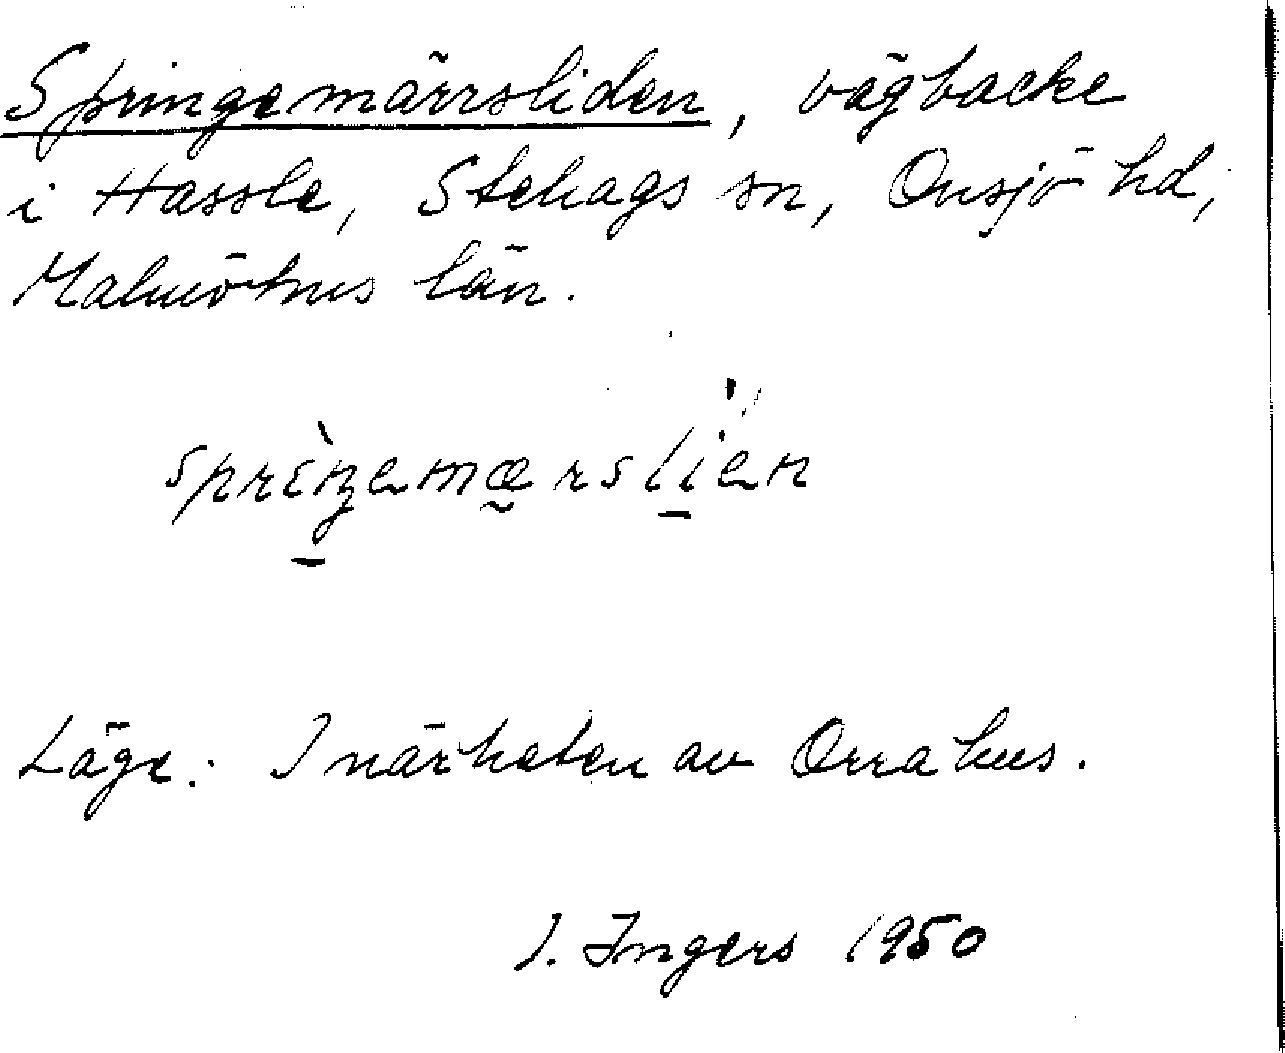 Springemärrsliden, vägbacke
i Hassle, Stehags sn, Onsjö hd,
Malmöhus län.
Läge: I närheten av Orrahus.
I. Ingers 1950